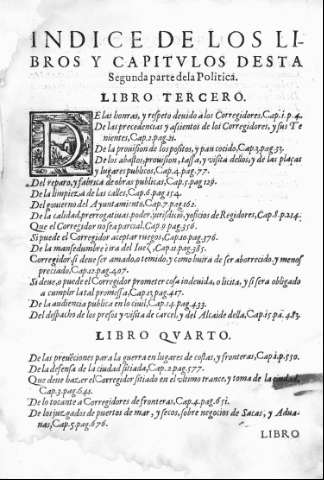 INDICE DE LOS LI-
BROS Y CAPITVLOS DESTA
Segunda parte dela Politica.
LIBRO TERCERO.
DE las honras, y respeto deuido a los Corregidores, Cap.1.p.4.
De las precedencias y assientos de los Corregidores, y sus Te
nientes, Cap.2.pag.21.
De la prouision de los positos, y pan cocido, Cap.3.pag.53.
De los abastos, prouision, tassa, y visita dellos, y de las plaças
y lugares publicos, Cap.4.pag.77.
Del reparo, y fabrica de obras publicas, Cap.5.pag.129.
De la limpieza de las calles, Cap.6.pag.154.
Del gouierno del Ayuntamiento, Cap.7.pag.162.
De la calidad, prerrogatiuas, poder, jurisdiciõ, y oficios de Regidores, Cap.8.p.224.
Que el Corregidor no sea parcial, Cap.9.pag.356.
Si puede el Corregidor aceptar ruegos, Cap.10.pag.376.
De la mansedumbre, è ira del Iuez, Cap.11.pag.385.
Corregidor si deue ser amado, o temido, y como huira de ser aborrecido, y menos
preciado, Cap.12.pag.407.
Si deue, o puede el Corregidor prometer cosa indeuida, o licita, y si sera obligado
a cumplir la tal promessa, Cap.13.pag.417.
De la audiencia publica en lo ciuil, Cap.14.pag.433.
Del despacho de los presos y visita de carcel, y del Alcaide della, Cap.15.pa.483.
LIBRO QVARTO.
De las preuẽciones para la guerra en lugares de costas, y fronteras, Cap.1.p.550.
De la defensa de la ciudad sitiada, Cap.2.pag.577.
Que deue hazer el Corregidor sitiado en el vltimo trance, y toma de la ciudad,
Cap.3.pag.642.
De lo tocante a Corregidores de fronteras, Cap.4.pag.651.
De los juzgados de puertos de mar, y secos, sobre negocios de Sacas, y Adua
nas, Cap.5.pag.676.
LIBRO